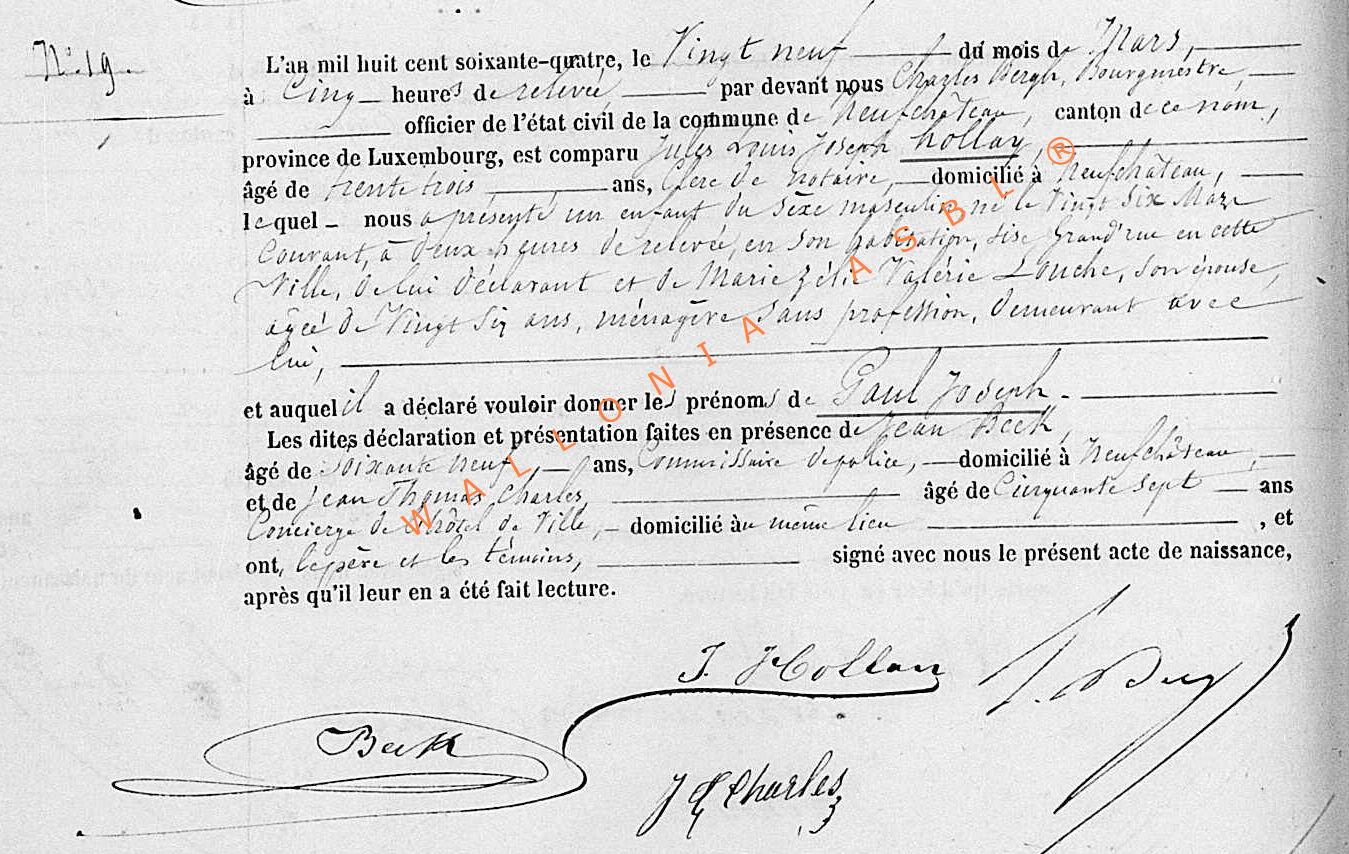 N° 19
L'an mil huit cent soixante-quatre, le Vingt neuf du mois de Mars,
à Cinq heures de relevée, par devant nous Charles Bergh, Bourgmestre,
officier de l'état civil de la commune de Neufchâteau, canton de ce nom,
province de Luxembourg, est comparu Jules Louis Joseph Hollan,
âgé de trente trois ans, Clerc de notaire, domicilié à Neufchâteau,
lequel nous a présenté un enfant du sexe masculin né le Vingt Six Mars
Courant, à deux heures de relevée, en son habitation, sise Grand'rue en cette
Ville, de lui déclarant et de Marie Zélie Valérie Louche, son épouse,
agée de Vingt Six ans, ménagère sans profession, demeurant avec
lui,
et auquel il a déclaré vouloir donner les prénoms de Paul Joseph
Les dites déclaration et présentation faites en présence de Jean Beck,
âgé de soixante neuf, ans, Commissaire de police, domicilié à Neufchâteau,
et de Jean Thomas Charles, âgé de Cinquante sept ans
Concierge de l'hôtel de Ville, domicilié au même lieu , et
ont, le père et les témoins, signé avec nous le présent acte de naissance,
après qu'il leur en a été fait lecture.
J. Hollan
Beck
J T Charles
WALLONIA ASBL ®